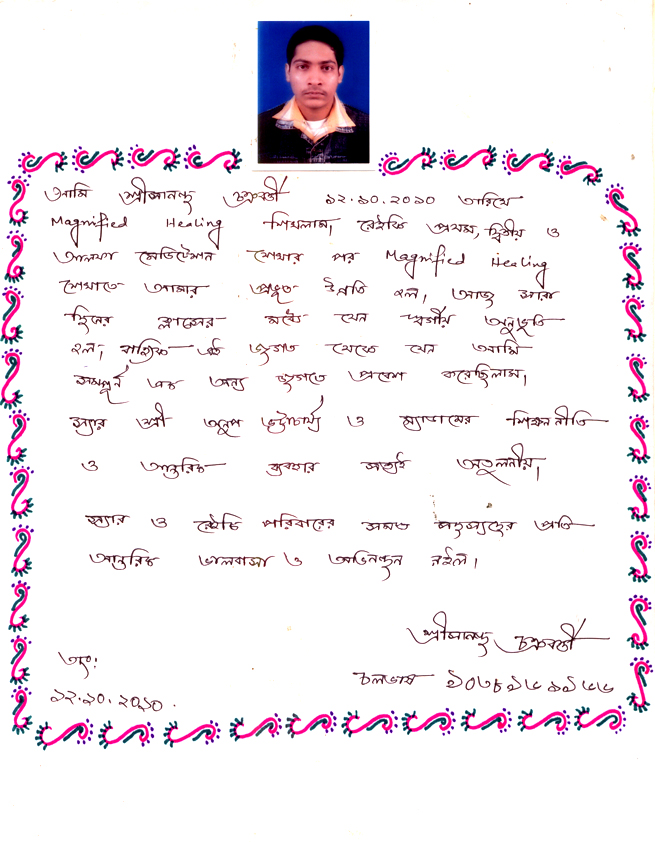 আমি শ্রীসানন্দ চক্রবর্তী ১২.১০.২০১০ তারিখে
Magnified Healing শিখলাম, রেইকি প্রথম, দ্বিতীয় ও
আলফা মেডিটেশন শেখার পর Magnified Healing
শেখাতে আমার প্রভূত উন্নতি হল, আজ সারা
দিনের ক্লাসের মধ্যে যেন স্বর্গীয় অনুভূতি
হল, বাহ্যিক এই জগত থেকে যেন আমি
সম্পূর্ন এক অন্য জগতে প্রবেশ করেছিলাম,
স্যার শ্রী অনুপ ভট্টাচার্য্য ও ম্যাডামের শিক্ষন নীতি
ও আন্তরিক ব্যবহার সত্যই অতুলনীয়,
স্যার ও রেইকি পরিবারের সমস্ত সদস্যদের প্রতি
আন্তরিক ভালবাসা ও অভিনন্দন রইল।
শ্রীসানন্দ চক্রবর্তী
তাং:
চলভাষ
১২.১০.২০১০.